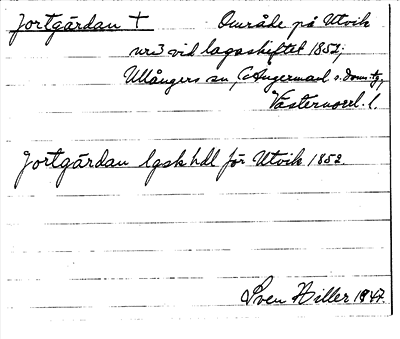 Jortgårdan † Område på Utvik
nr 3 vid lagaskiftet 1852;
Ullångers sn, Ångermanl. s. doms.tg,
Västernorrl. l.
Jortgårdan lgsk hdl för Utvik 1852.
Sven Hiller 1947.